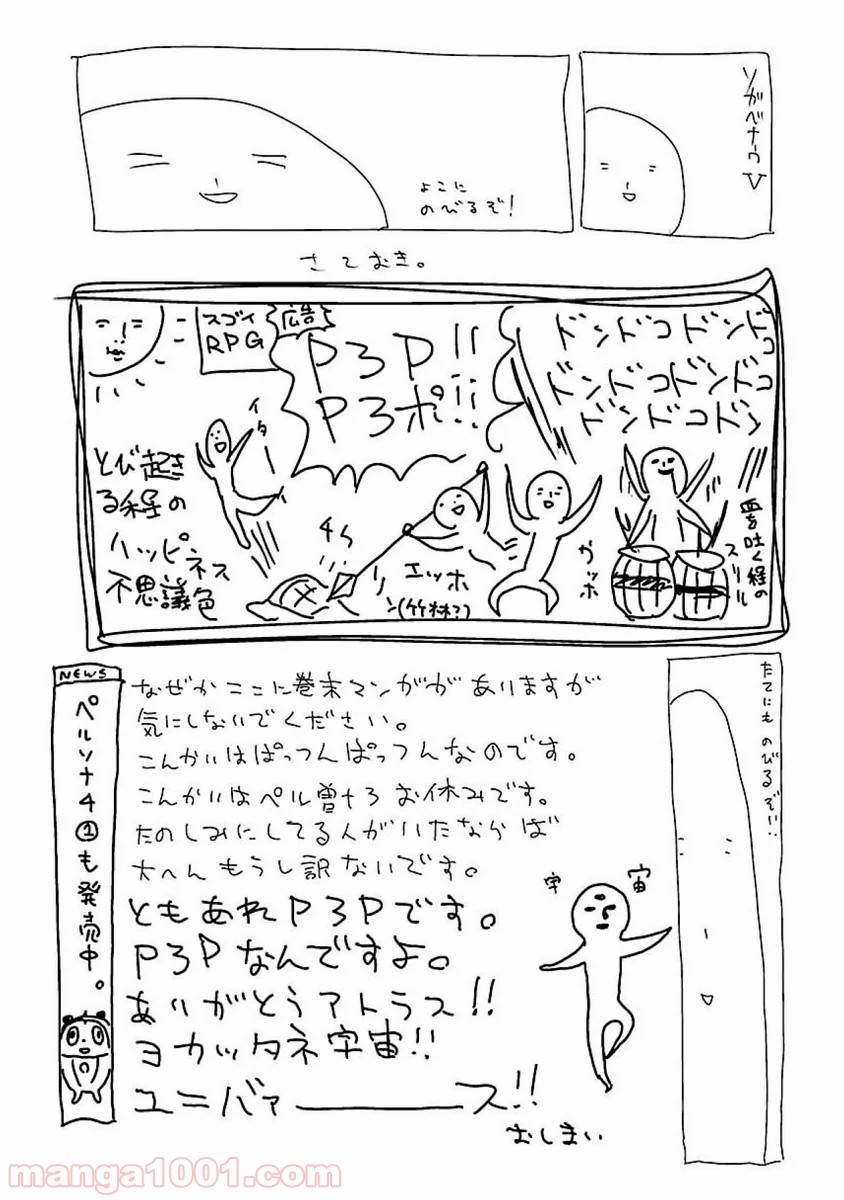 ソガベナウ
よこに
のびるぞ！
さておき。
ドンドコドンドコ
ドンドコドンドコ
ドンドコドン
P3P!!
P3ポ!!
広告
スゴイ
RPG
血を吐く程の
スリル
ガッホ
エッホ
(竹林?)
イターイ
とび起き
る程の
ハッピネス
不思議色
たてにも のびるぞ!!
なぜかここに巻末マンガがありますが
気にしないでください。
こんかいはぱっつんぱっつんなのです。
こんかいはペル曽ナ3 お休みです。
たのしみにしてる人がいたならば
大へん もうし訳ないです。
ともあれP3Pです。
P3Pなんですよ。
ありがとうアトラス!!
ヨカッタネ宇宙!!
ユニバァーース!!
おしまい
宇宙
NEWS
ペルソナ4①も発売中。
manga1001.com